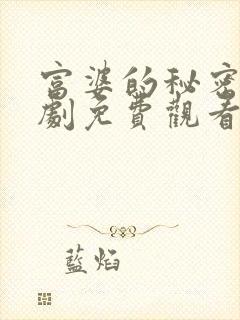 富婆的秘密
劇免費觀看
藍焰